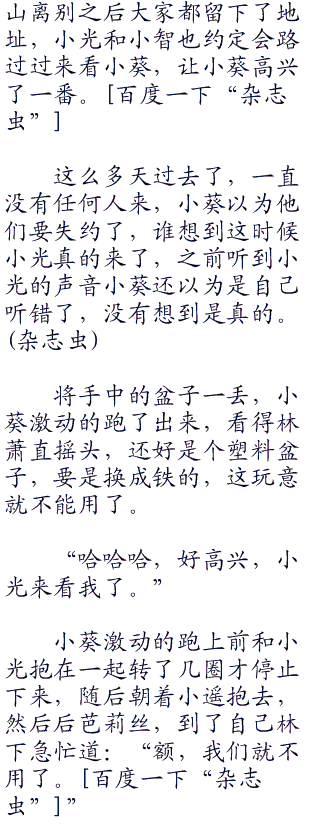 山离别之后大家都留下了地
址，小光和小智也约定会路
过过来看小葵，让小葵高兴
了一番。[百度一下“杂志
虫”]
这么多天过去了，一直
没有任何人来，小葵以为他
们要失约了，谁想到这时候
小光真的来了，之前听到小
光的声音小葵还以为是自己
听错了，没有想到是真的。
(杂志虫)
将手中的盆子一丢，小
葵激动的跑了出来，看得林
萧直摇头，还好是个塑料盆
子，要是换成铁的，这玩意
就不能用了。
“哈哈哈，好高兴，小
光来看我了。”
小葵激动的跑上前和小
光抱在一起转了几圈才停止
下来，随后朝着小遥抱去，
然后后芭莉丝，到了自己林
下急忙道：“额，我们就不
用了。[百度一下“杂志
虫”]”